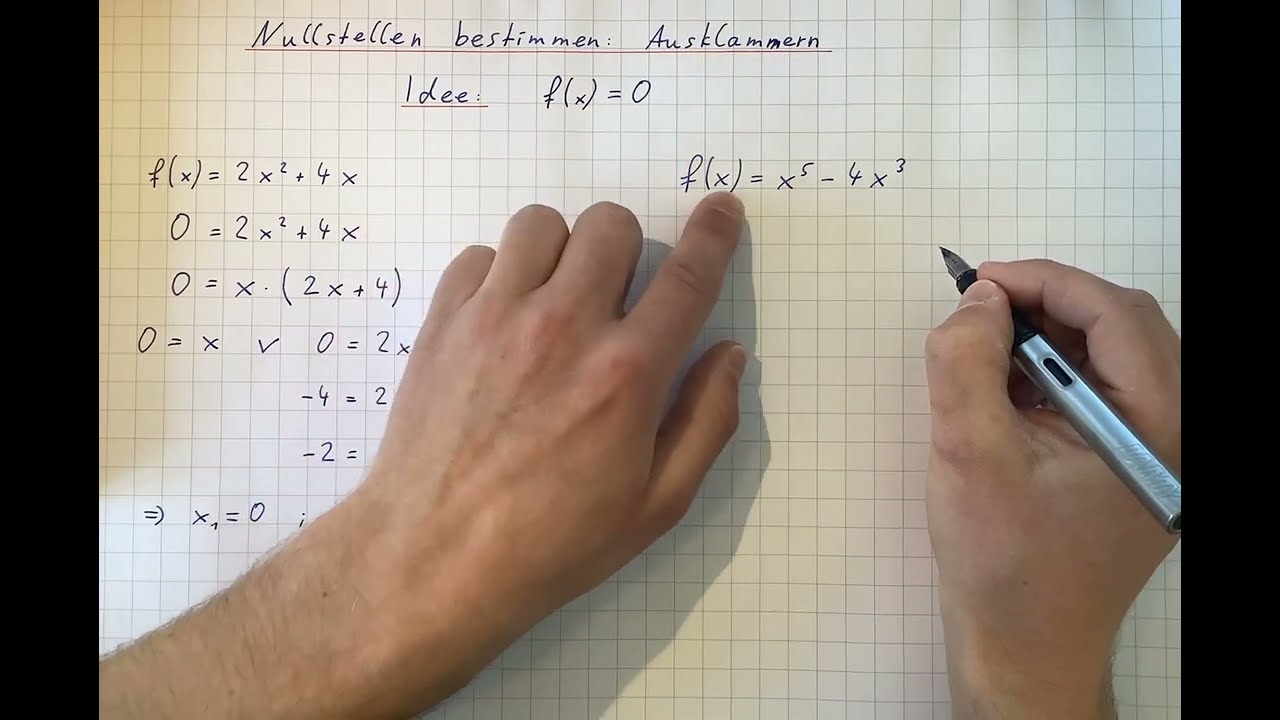 Nullstellen bestimmen: Ausklammern
Idee: f(x) = 0
f(x) = 2x² + 4x
0 = 2x² + 4x
0 = x · (2x + 4)
0 = x ∨ 0 = 2x
-4 = 2
-2 =
⇒ x₁ = 0 ;
f(x) = x⁵ - 4x³